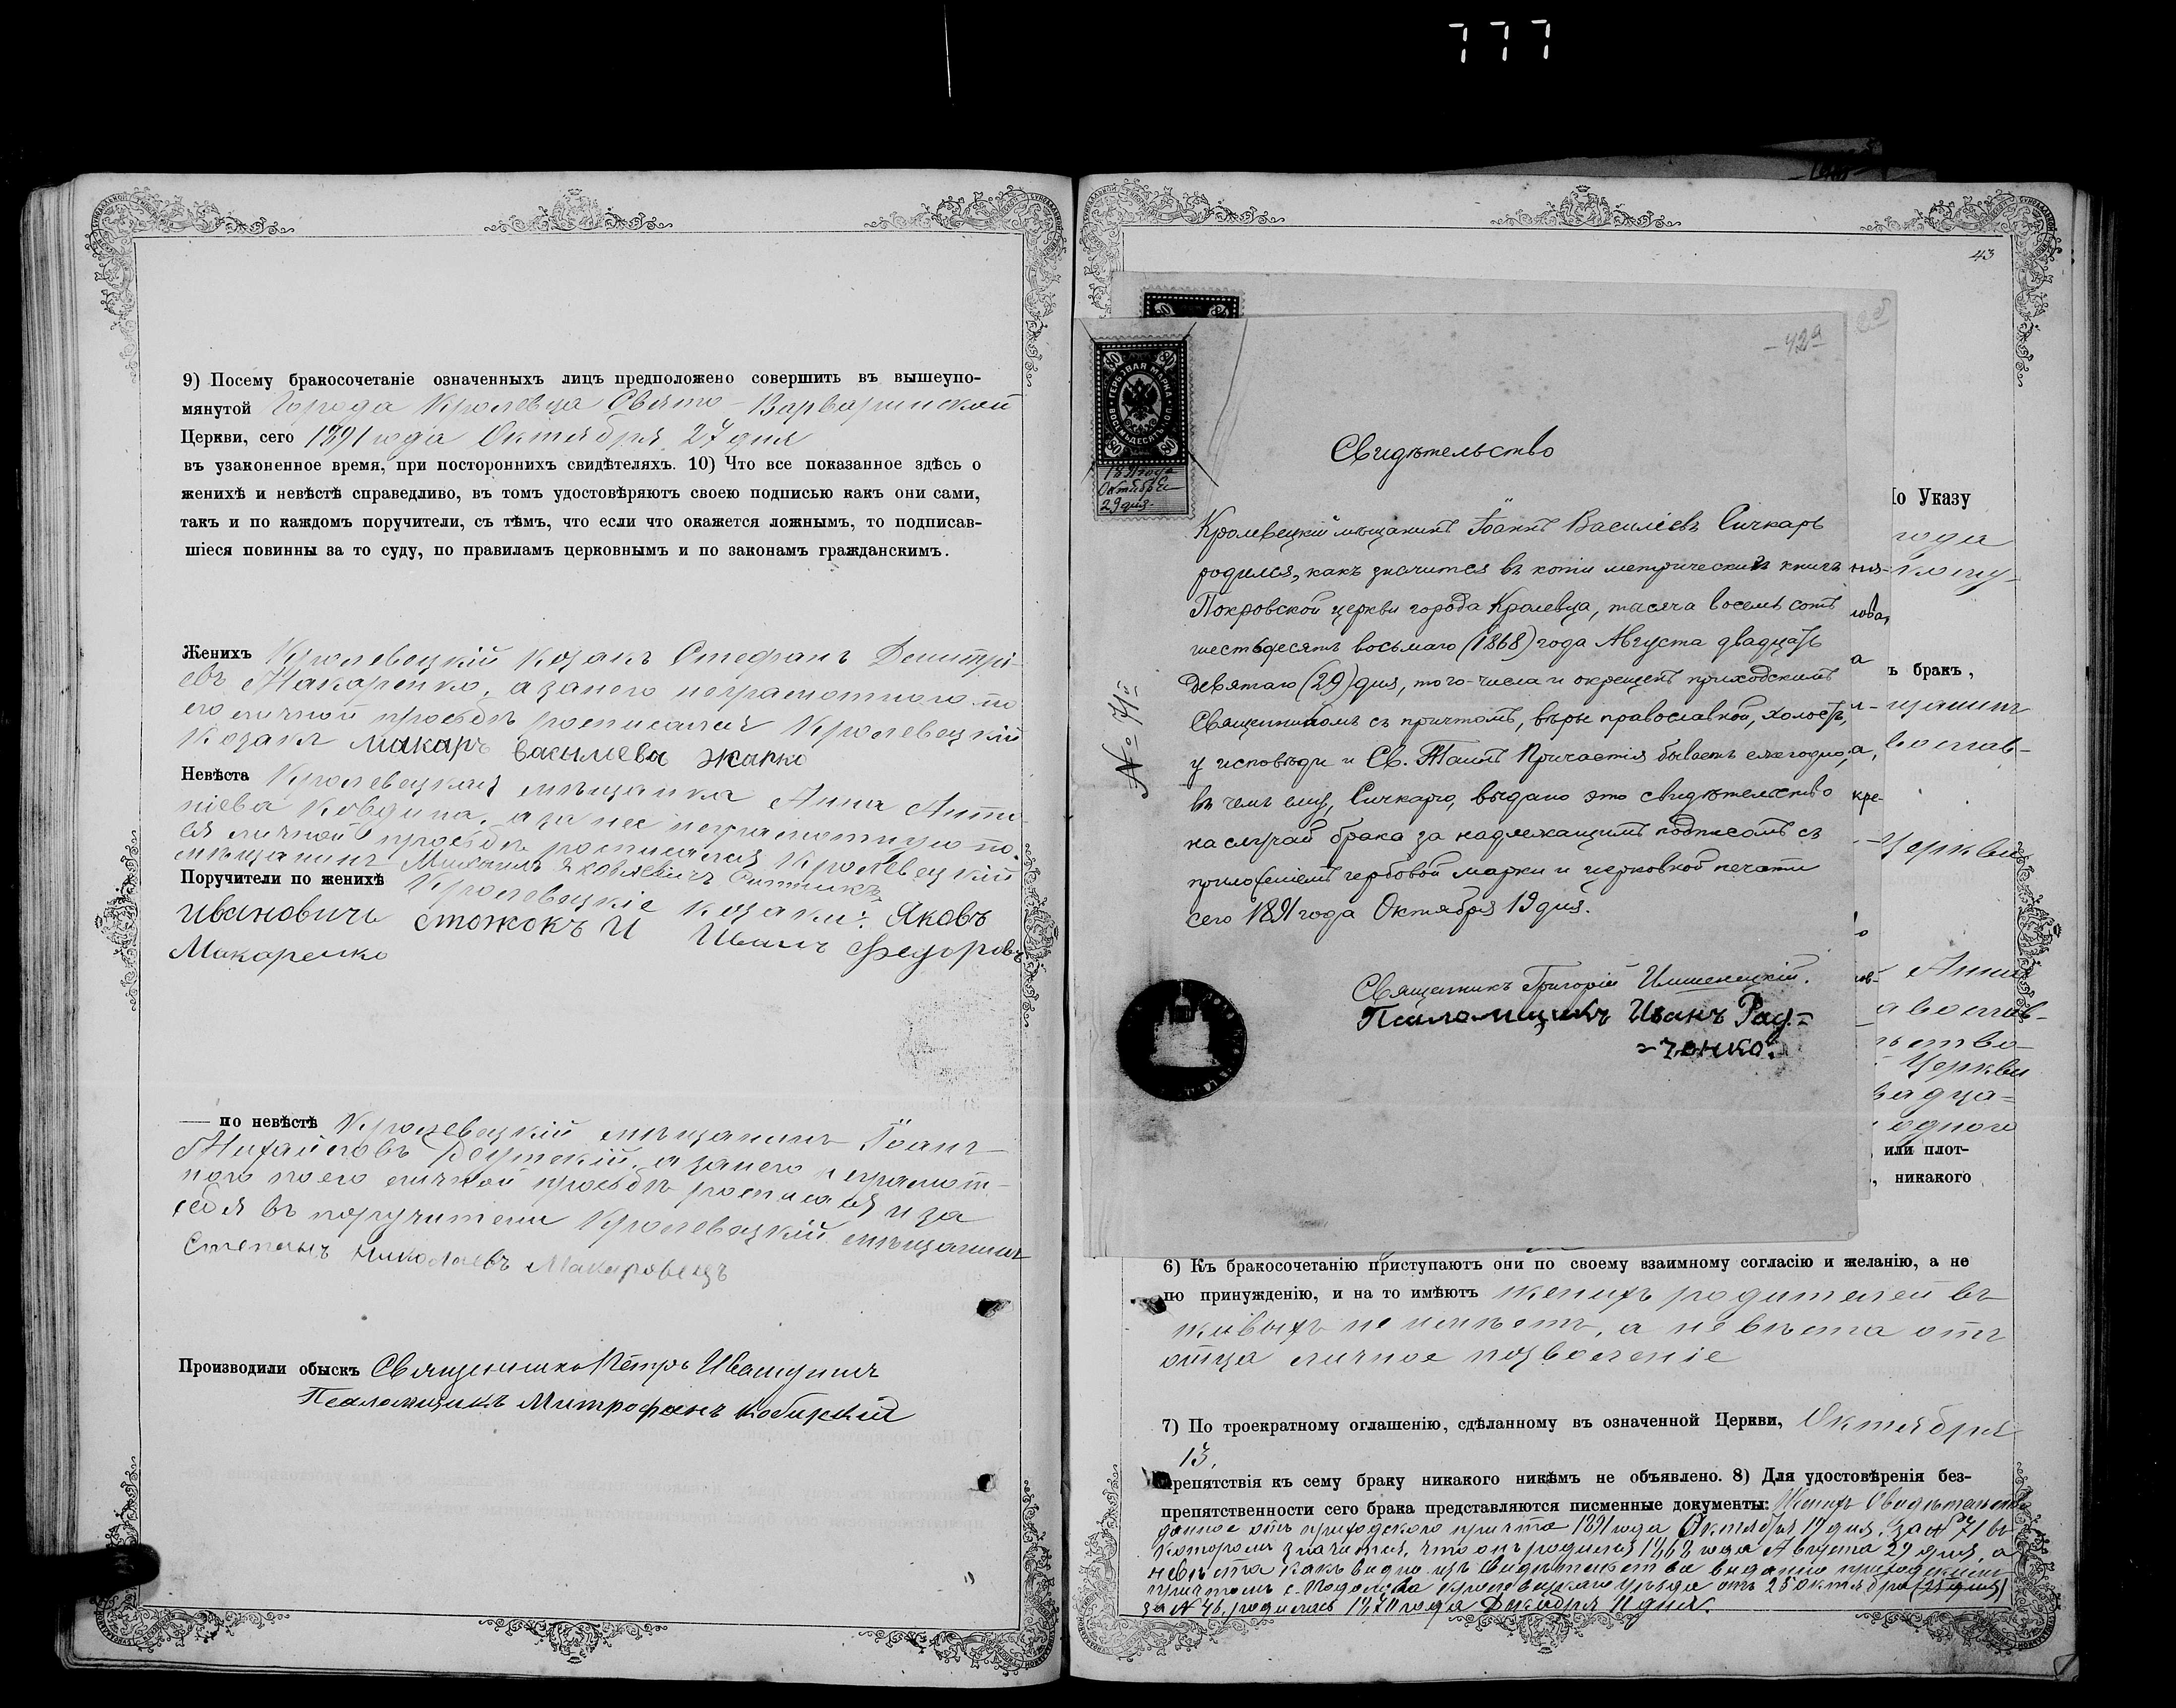 777
9) Посему бракосочетаніе означенныхъ лицъ предположено совершить въ вышеупо-
мянутой Города Кролевца Свято-Варваринской
Церкви, сего 1891 года Октября 27 дня
въ узаконенное время, при постороннихъ свидѣтеляхъ. 10) Что все показанное здѣсь о
женихѣ и невѣстѣ справедливо, въ томъ удостовѣряютъ своею подписью какъ они сами,
такъ и по каждомъ поручители, съ тѣмъ, что если что окажется ложнымъ, то подписав-
шіеся повинны за то суду, по правиламъ церковнымъ и по законамъ гражданскимъ.
Женихъ Кролевецкій козакъ Стефанъ Димитрі-
евъ Макаренко, а за него неграмотного по
его личной просьбѣ росписался Кролевецкій
козакъ Макаръ Васильевъ Жарко
Невѣста Кролевецкая мѣщанка Анна
а за нее неграмотную по
ея личной просьбѣ росписался Кролевецкій
мѣщанинъ Михаилъ Яковлевичъ
Поручители по женихѣ Кролевецкіе козаки: Яковъ
Ивановичъ Стожокъ И Иванъ Федоровъ
Макаренко
— по невѣстѣ Кролевецкій мѣщанинъ Іоаннъ
Михайловъ а за него неграмот-
ного по его личной просьбѣ росписался и за
себя въ поручители Кролевецкій мѣщанинъ
Степанъ Николаевъ Макаровецъ
Производили обыскъ Священникъ Петръ
Псаломщикъ Митрофанъ
43
42а
1891 года
Октября
29 дня.
Свидѣтельство
Кролевецкій мѣщанинъ Іоаннъ Василіевъ Сичкарь
родился, какъ значится въ копіи метрическихъ книгъ
Покровской церкви города Кролевца, тысяча восемь сотъ
шестьдесятъ восьмаго (1868) года Августа двадцать
девятаго (29) дня, того-числа и окрещенъ приходскимъ
Священникомъ съ причтомъ, вѣры православной, холостъ,
у исповѣди и Св. Таинъ Причастія бываетъ ежегодно,
въ чемъ ему, Сичкарю, выдано это свидѣтельство
на случай брака за надлежащимъ подписомъ съ
приложеніемъ гербовой марки и церковной печати
сего 1891 года Октября 19 дня.
№ 71й
Священникъ Григорій Имшенецкій.
Псаломщикъ Иванъ Рад-
-ченко.
По Указу
года
ъ бракъ,
Церкви
Анна
Церкви
одного
или плот-
никакого
6) Къ бракосочетанію приступаютъ они по своему взаимному согласію и желанію, а не
по принужденію, и на то имѣютъ женихъ родителей въ
живыхъ не имѣетъ, а невѣста отъ
отца личное позволеніе
7) По троекратному оглашенію, сдѣланному въ означенной Церкви, Октября
13,
препятствія къ сему браку никакого никѣмъ не объявлено. 8) Для удостовѣренія без-
препятственности сего брака представляются писменные документы: Женихъ Свидѣтельство
данное отъ приходского причта 1891 года Октября 19 дня за № 71 въ
которомъ значится, что онъ родился 1868 года Августа 29 дня, а
невѣста какъ видно изъ свидѣтельства выданно приходскимъ
причтомъ с. Подолова Кролевецкаго уѣзда отъ 25 октября (25 дня)
за № 46, родилась 1870 года Декабря 11 дня.